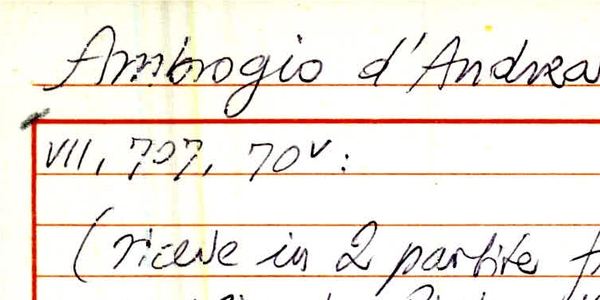 Ambrogio d'Andrea
VII, 707, 70v:
(riceve in 2 partite